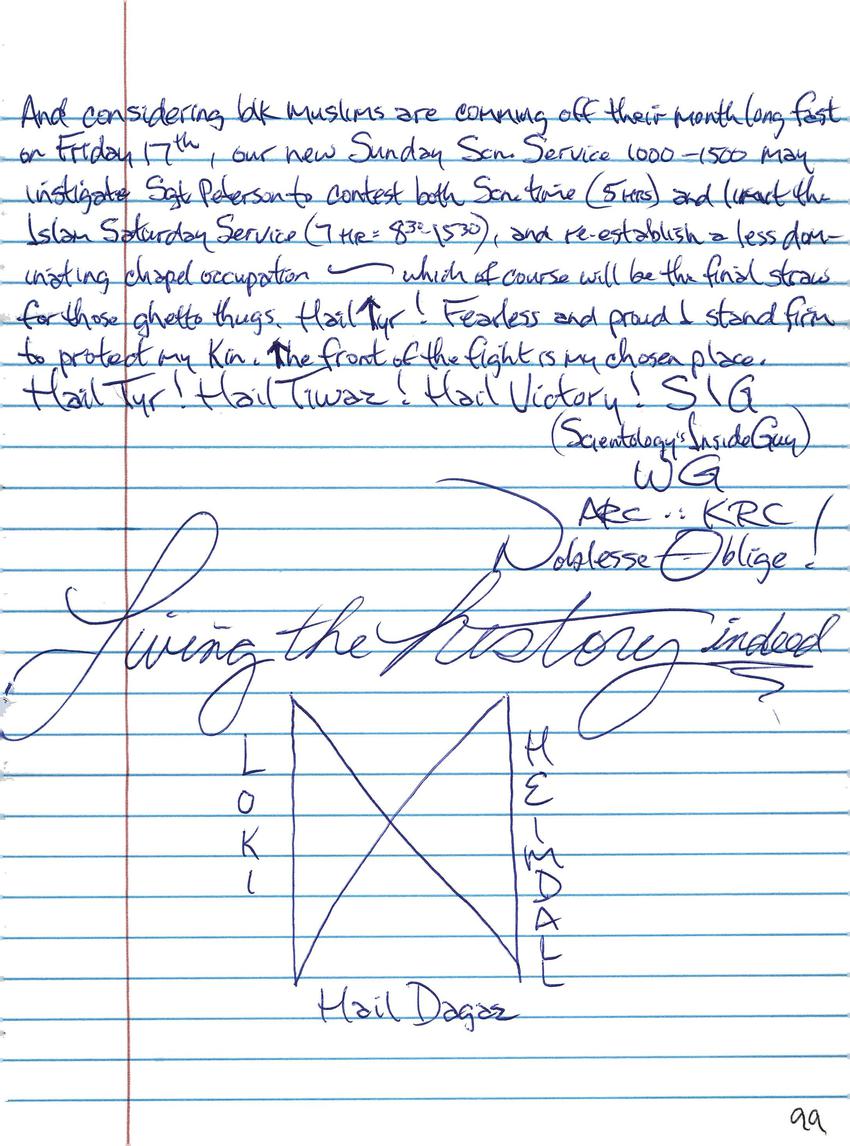 And considering blk muslims are comming off their month long fast
on Friday 17th, our new Sunday Scn. Service 1000-1500 may
instigate Sgt. Peterson to contest both Scn. time (5 HRS) and the
Islam Saturday Service (7 HR = 830-1530), and re-establish a less dom-
inating chapel occupation — which of course will be the final straw
for those ghetto thugs. Hail Tyr! Fearless and proud I stand firm
to protect my Kin. The front of the fight is my chosen place.
Hail Tyr! Hail Tiwaz! Hail Victory! SIG
(Scientology's Inside Guy)
WG
ARC ∴ KRC
Noblesse Oblige!
Living the history indeed
LOKI
HEIMDALL
Hail Dagaz
99